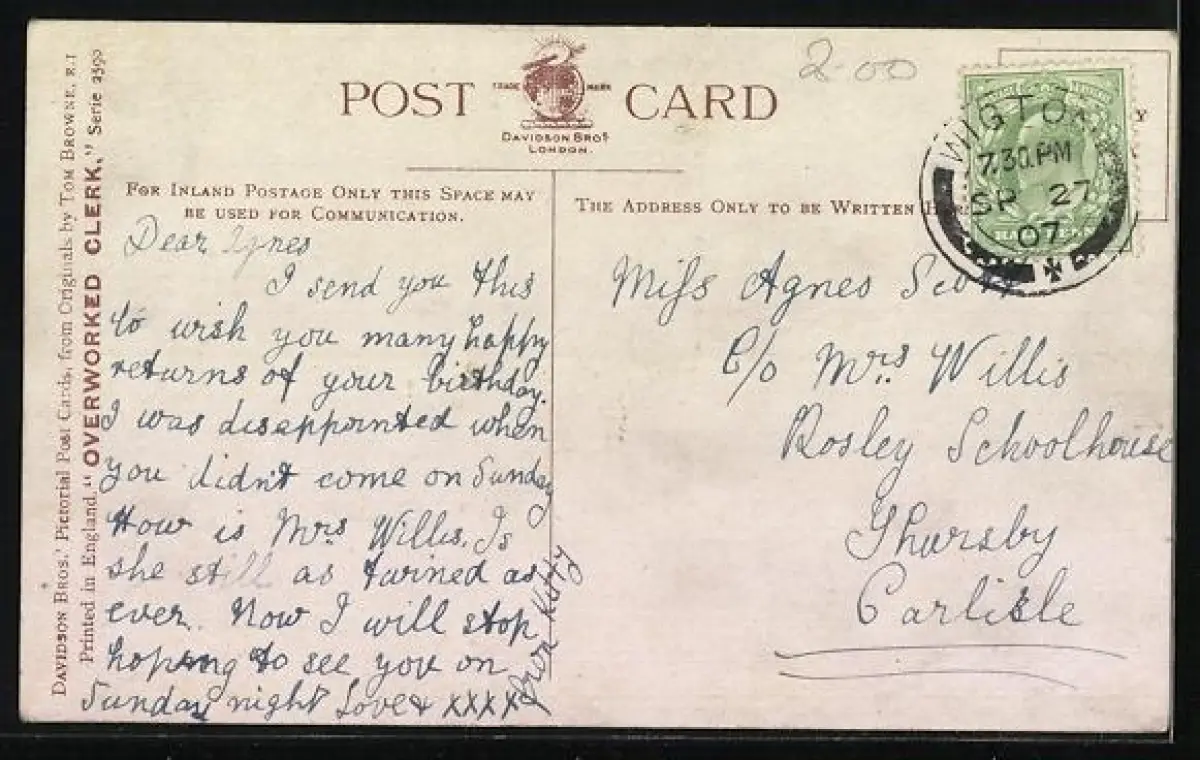 DAVIDSON BROS.' Pictorial Post Cards, from Originals by TOM BROWNE, R.I
Printed in England. "OVERWORKED CLERK," Serie 2590
POST CARD
TRADE MARK
DAVIDSON BROS.
LONDON.
2.00
WIGTON
7.30.PM
SP 27
07
FOR INLAND POSTAGE ONLY THIS SPACE MAY
BE USED FOR COMMUNICATION.
THE ADDRESS ONLY TO BE WRITTEN HERE
Dear Agnes
I send you this
to wish you many happy
returns of your birthday.
I was disappointed when
you didn't come on Sunday
How is Mrs Willis. Is
she still as as
ever. Now I will stop
hoping to see you on
Sunday night Love & xxxx
from Katy
Miss Agnes Scott
C/o Mrs. Willis
Rosley Schoolhouse
Thursby
Carlisle